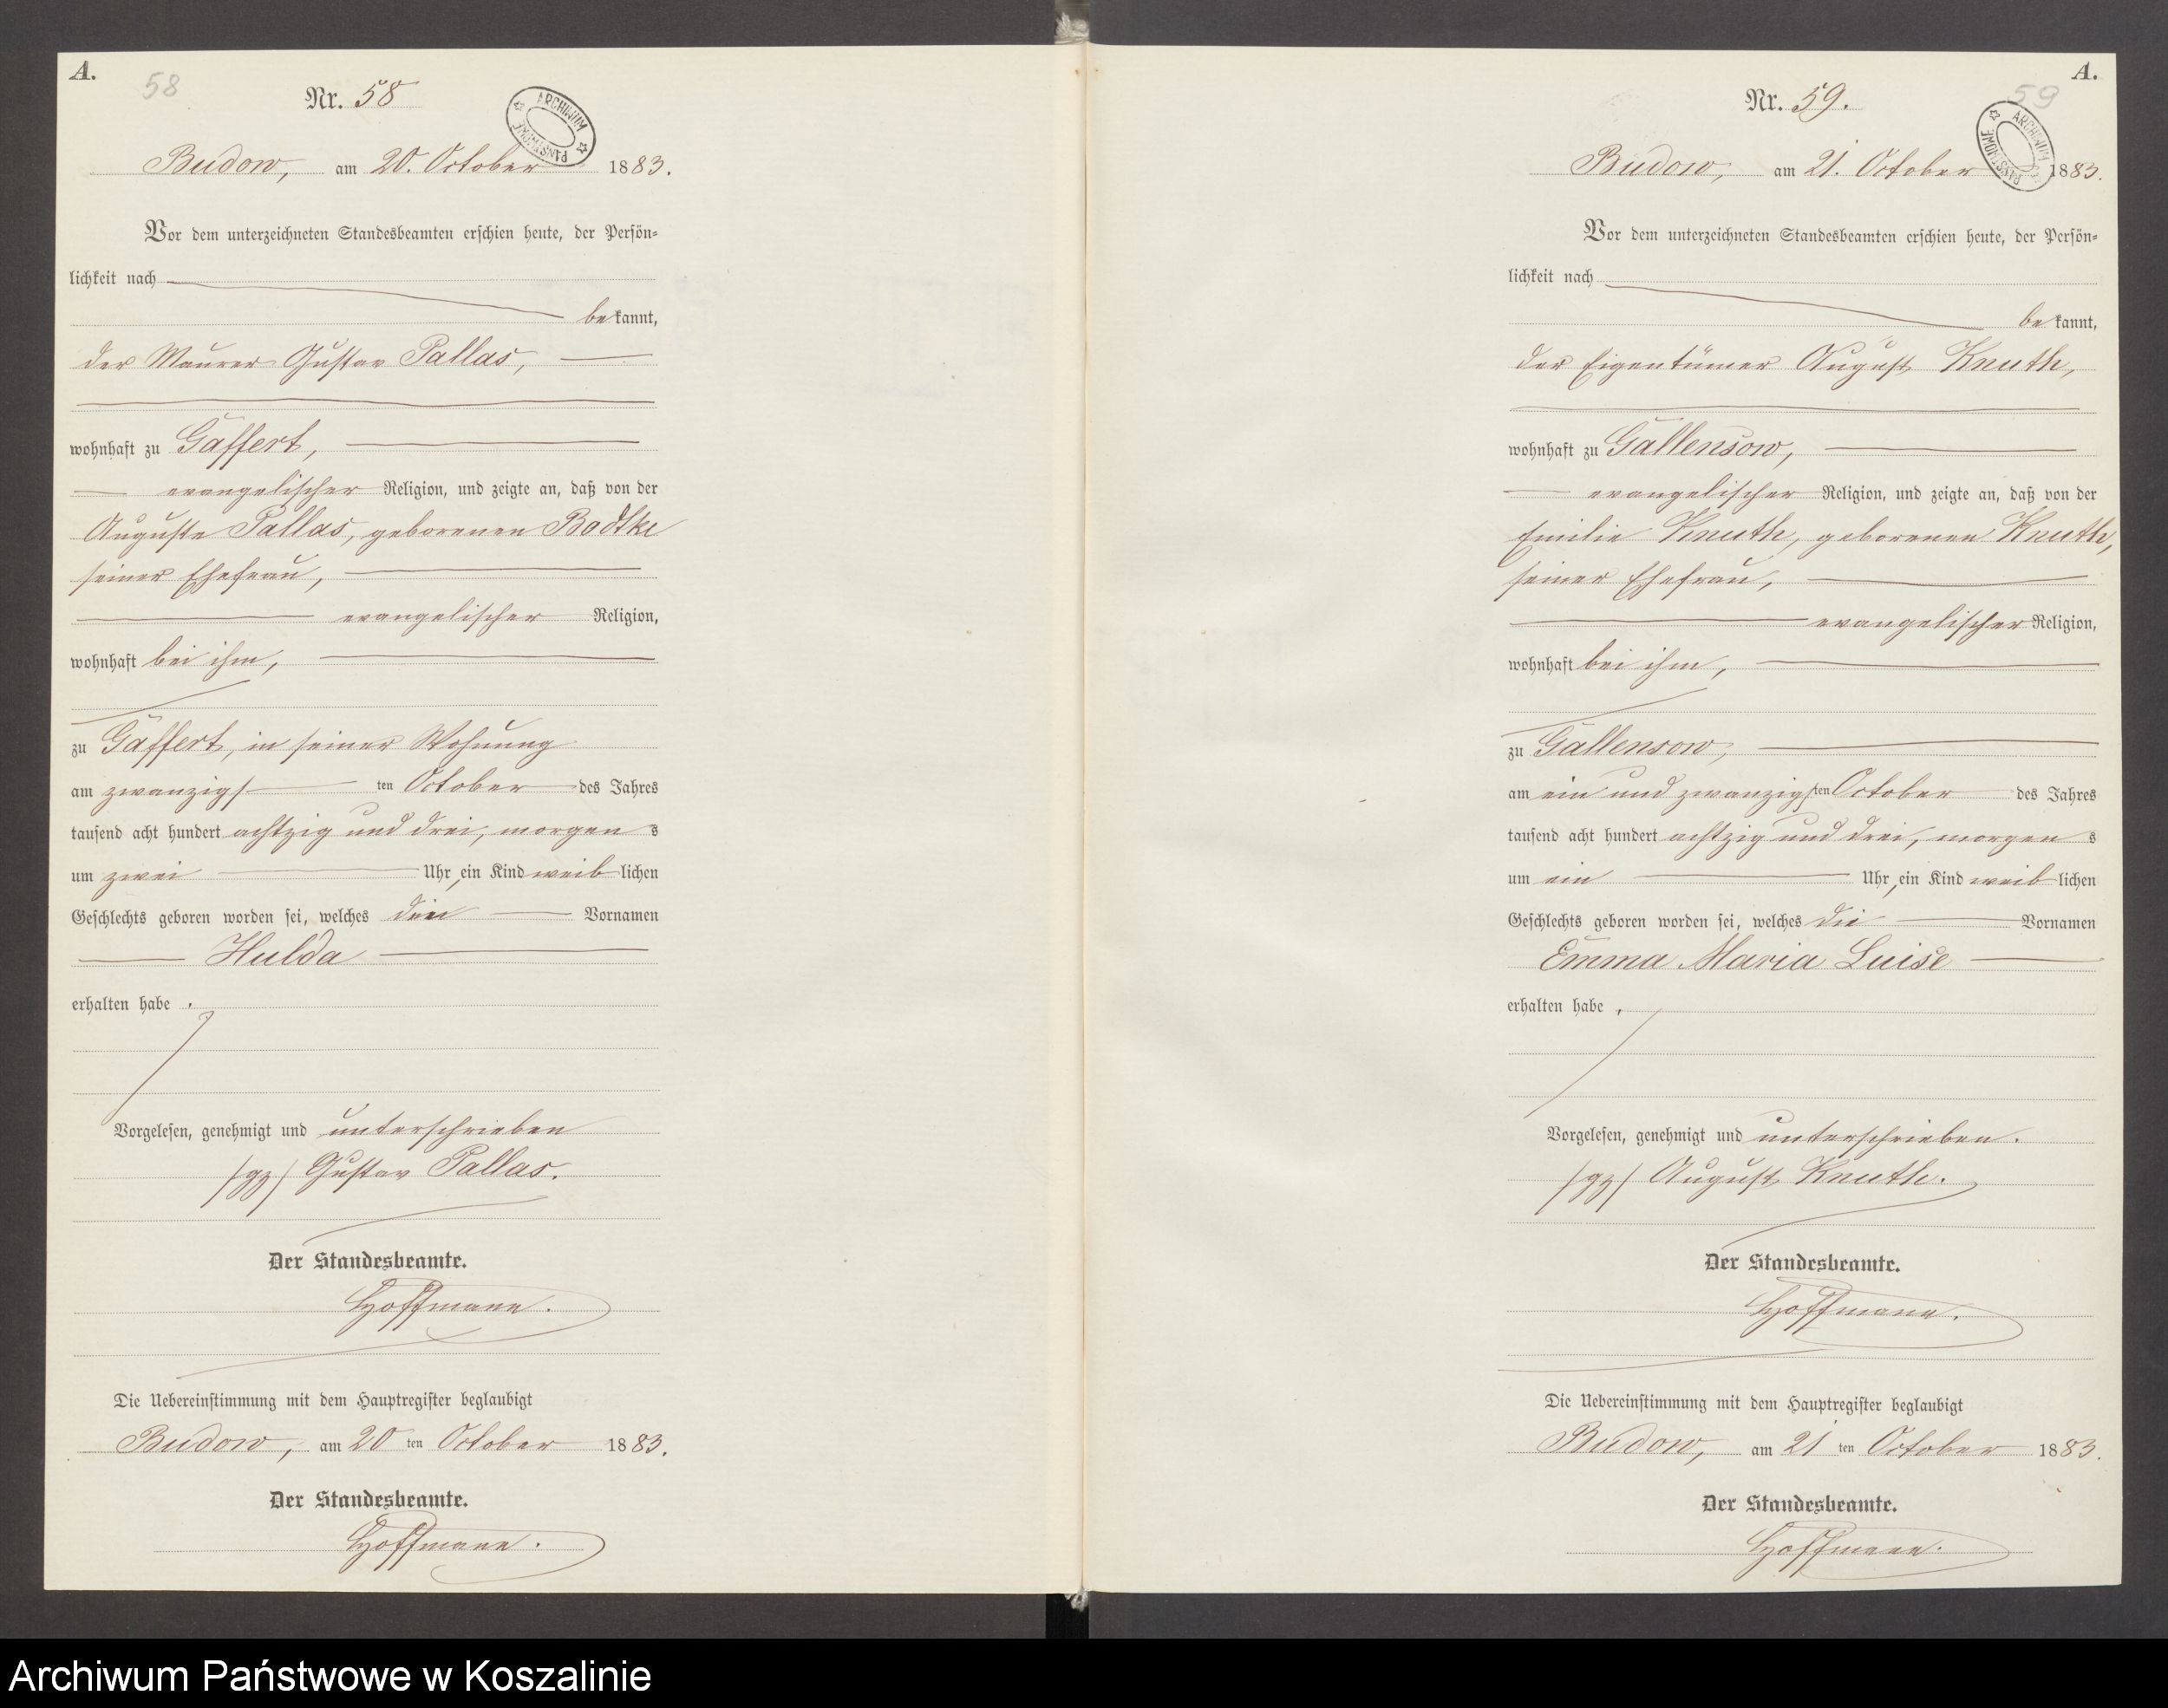 A.
58
Nr. 58
ARCHIWUM PAŃSTWOWE
Budow, am 20. October 1883.
Vor dem unterzeichneten Standesbeamten erschien heute, der Persön-
lichkeit nach
bekannt,
der Maurer Gustav Pallas,
wohnhaft zu Gaffert,
evangelischer Religion, und zeigte an, daß von der
Auguste Pallas, geborenen Badtke
seiner Ehefrau,
evangelischer Religion,
wohnhaft bei ihm,
zu Gaffert, in seiner Wohnung
am zwanzigsten October des Jahres
tausend acht hundert achtzig und drei, morgens
um zwei Uhr, ein Kind weiblichen
Geschlechts geboren worden sei, welches den Vornamen
Hulda
erhalten habe.
Vorgelesen, genehmigt und unterschrieben
/gz/ Gustav Pallas.
Der Standesbeamte.
Hoffmann.
Die Uebereinstimmung mit dem Hauptregister beglaubigt
Budow, am 20 ten October 1883.
Der Standesbeamte.
Hoffmann.
A.
59
Nr. 59.
ARCHIWUM PAŃSTWOWE
Budow, am 21. October 1883.
Vor dem unterzeichneten Standesbeamten erschien heute, der Persön-
lichkeit nach
bekannt,
der Eigentümer August Knuth,
wohnhaft zu Gallensow,
evangelischer Religion, und zeigte an, daß von der
Emilie Knuth, geborenen Knuth,
seiner Ehefrau,
evangelischer Religion,
wohnhaft bei ihm,
zu Gallensow,
am ein und zwanzigsten October des Jahres
tausend acht hundert achtzig und drei, morgens
um ein Uhr, ein Kind weiblichen
Geschlechts geboren worden sei, welches die Vornamen
Emma Maria Luise
erhalten habe.
Vorgelesen, genehmigt und unterschrieben.
/gz/ August Knuth.
Der Standesbeamte.
Hoffmann.
Die Uebereinstimmung mit dem Hauptregister beglaubigt
Budow, am 21 ten October 1883.
Der Standesbeamte.
Hoffmann.
Archiwum Państwowe w Koszalinie